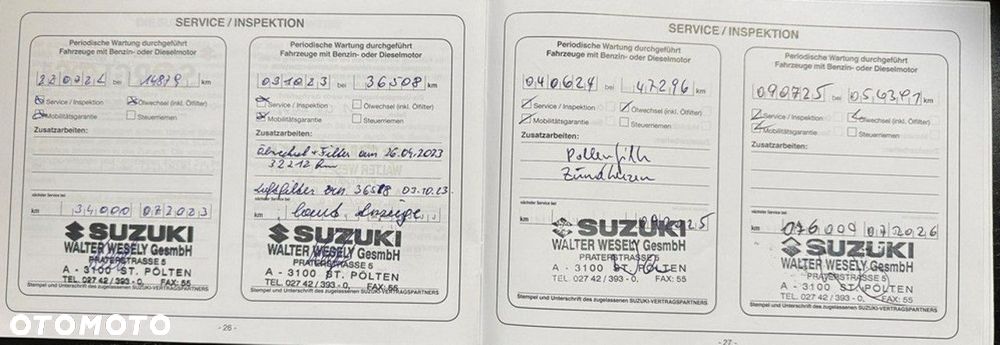 SERVICE / INSPEKTION
Periodische Wartung durchgeführt
Fahrzeuge mit Benzin- oder Dieselmotor
bei 14879 km
Service / Inspektion Ölwechsel (inkl. Ölfilter)
Mobilitätsgarantie Steuerriemen
Zusatzarbeiten:
nächster Service bei
km 34000 072023
SUZUKI
WALTER WESELY GesmbH
PRATERSTRASSE 5
A - 3100 ST. PÖLTEN
TEL. 02742 / 393 - 0, FAX: 55
Stempel und Unterschrift des zugelassenen SUZUKI-VERTRAGSPARTNERS
- 26 -
Periodische Wartung durchgeführt
Fahrzeuge mit Benzin- oder Dieselmotor
031023 bei 36508 km
Service / Inspektion Ölwechsel (inkl. Ölfilter)
Mobilitätsgarantie Steuerriemen
Zusatzarbeiten:
Ölwechsel + Filter am 26.04.2023
32212 km
Luftfilter 03.10.23
nächster Service bei
km laut Anzeige
SUZUKI
WALTER WESELY GesmbH
PRATERSTRASSE 5
A - 3100 ST. PÖLTEN
TEL. 02742 / 393 - 0, FAX: 55
Stempel und Unterschrift des zugelassenen SUZUKI-VERTRAGSPARTNERS
SERVICE / INSPEKTION
Periodische Wartung durchgeführt
Fahrzeuge mit Benzin- oder Dieselmotor
040624 bei 47296 km
Service / Inspektion Ölwechsel (inkl. Ölfilter)
Mobilitätsgarantie Steuerriemen
Zusatzarbeiten:
nächster Service bei
km
SUZUKI
WALTER WESELY GesmbH
PRATERSTRASSE 5
A - 3100 ST. PÖLTEN
TEL. 02742 / 393 - 0, FAX: 55
Stempel und Unterschrift des zugelassenen SUZUKI-VERTRAGSPARTNERS
- 27 -
Periodische Wartung durchgeführt
Fahrzeuge mit Benzin- oder Dieselmotor
090725 bei km
Service / Inspektion Ölwechsel (inkl. Ölfilter)
Mobilitätsgarantie Steuerriemen
Zusatzarbeiten:
nächster Service bei
km 072026
SUZUKI
WALTER WESELY GesmbH
PRATERSTRASSE 5
A - 3100 ST. PÖLTEN
TEL. 02742 / 393 - 0, FAX: 55
Stempel und Unterschrift des zugelassenen SUZUKI-VERTRAGSPARTNERS
OTOMOTO